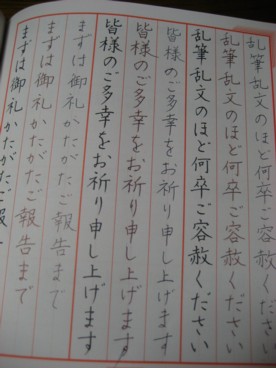 乱筆乱文のほど何卒ご容赦ください
乱筆乱文のほど何卒ご容赦ください
乱筆乱文のほど何卒ご容赦ください
皆様のご多幸をお祈り申し上げます
皆様のご多幸をお祈り申し上げます
皆様のご多幸をお祈り申し上げます
まずは御礼かたがたご報告まで
まずは御礼かたがたご報告まで
まずは御礼かたがたご報